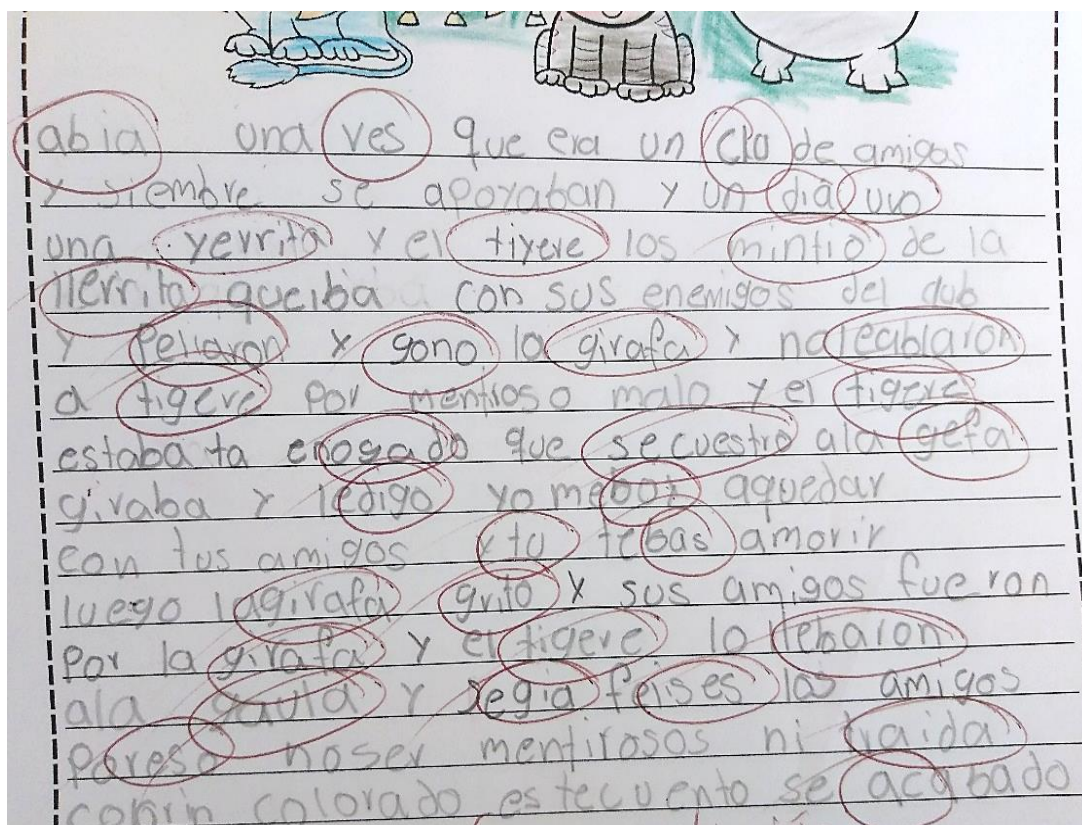 abia una ves que era un clu de amigos
y siembre se apoyaban y un dia uvo
una yerrita y el tiyere los mintio de la
llerrita queiba con sus enemigos del dub
y peliaron y gono la girafa y no leablaron
a tigere por mentioso malo y el tigere
estaba ta enogado que secuestro ala gefa
giraba y ledigo yo meboy aquedar
con tus amigos y tu tebas amorir
luego lagirafa grito y sus amigos fueron
por la girafa y el tigere lo lebaron
ala gaula y segia felises los amigos
pareso noser mentirosos ni traida
colorin colorado estecuento se acabado